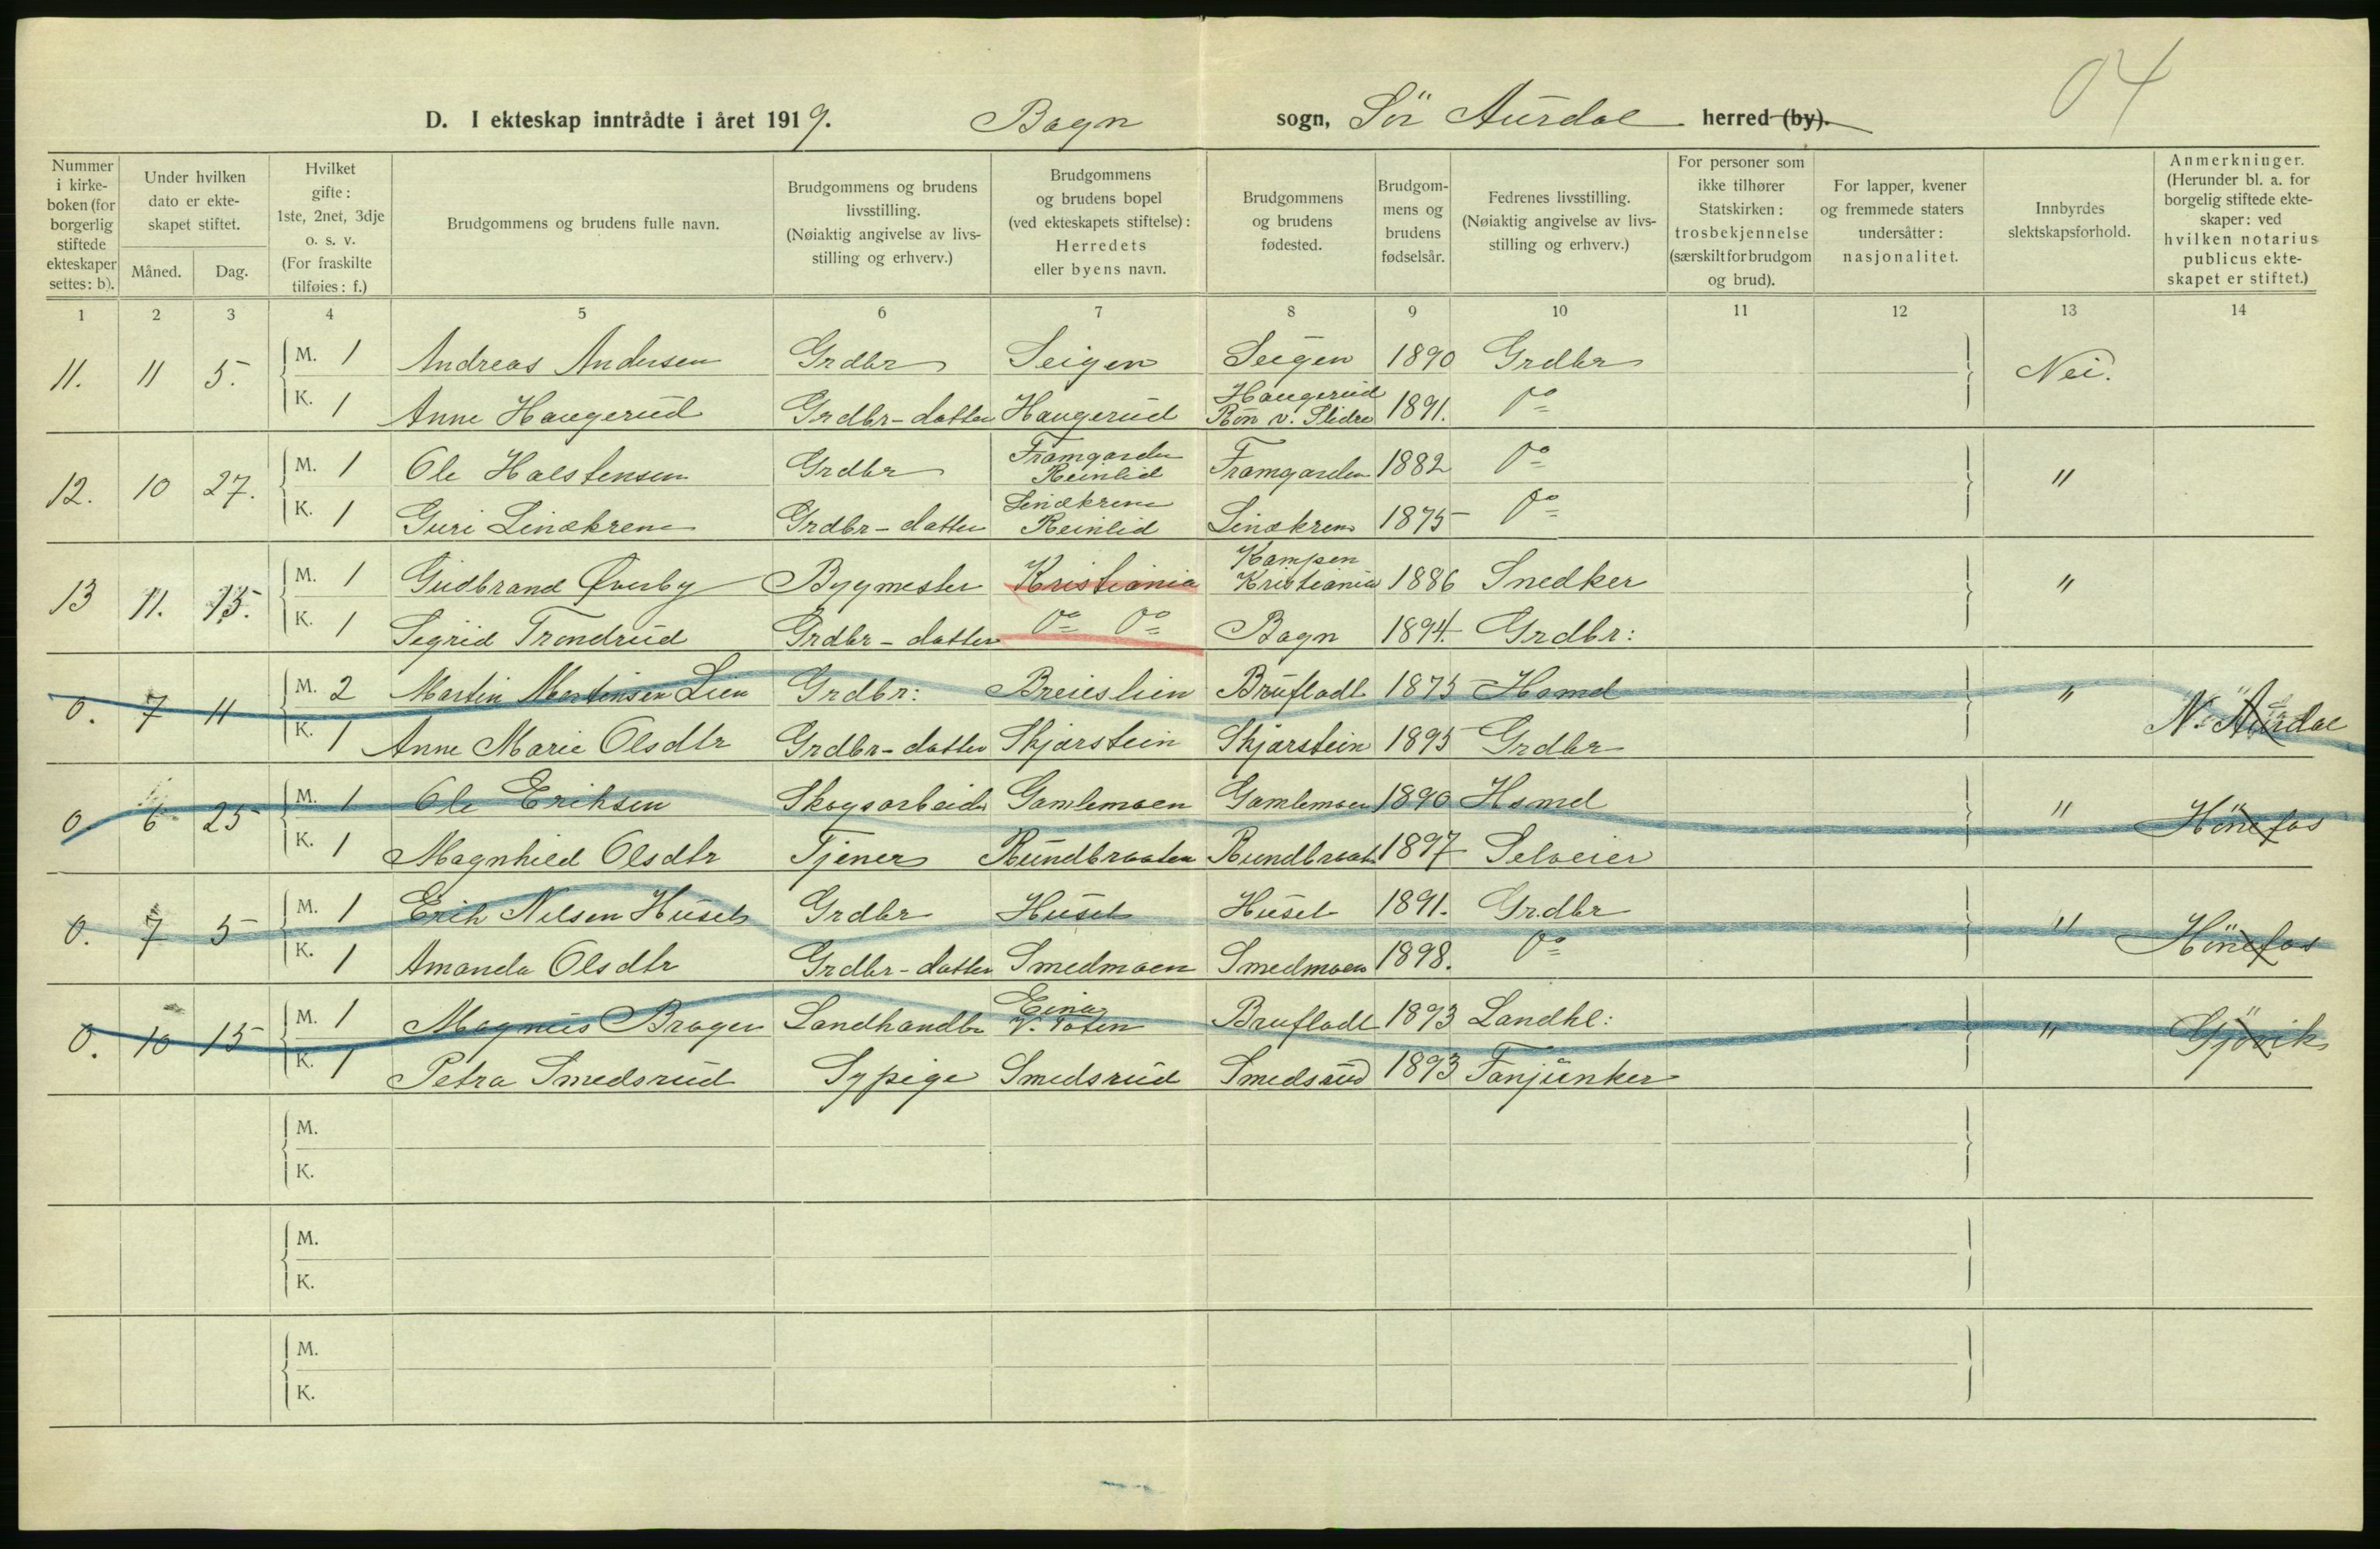 04
D. I ekteskap inntrådte i året 1919. Bagn sogn, Sör Aurdal herred (by).
Nummer i kirkeboken (for borgerlig stiftede ekteskaper settes: b).
Under hvilken dato er ekteskapet stiftet.
Måned. Dag.
Hvilket gifte: 1ste, 2net, 3dje o. s. v. (For fraskilte tilføies: f.)
Brudgommens og brudens fulle navn.
Brudgommens og brudens livsstilling. (Nøiaktig angivelse av livsstilling og erhverv.)
Brudgommens og brudens bopel (ved ekteskapets stiftelse): Herredets eller byens navn.
Brudgommens og brudens fødested.
Brudgommens og brudens fødselsår.
Fedrenes livsstilling. (Nøiaktig angivelse av livsstilling og erhverv.)
For personer som ikke tilhører Statskirken: trosbekjennelse (særskilt for brudgom og brud).
For lapper, kvener og fremmede staters undersåtter: nasjonalitet.
Innbyrdes slektskapsforhold.
Anmerkninger. (Herunder bl. a. for borgelig stiftede ekteskaper: ved hvilken notarius publicus ekteskapet er stiftet.)
1 2 3 4 5 6 7 8 9 10 11 12 13 14
11. 11 5. M. 1 Andreas Andersen Grdbr Seigen Seigen 1890 Grdbr Nei.
K. 1 Anne Haugerud Grdbr-datter Haugerud Haugerud Røn v. Slidre 1891. Do
12. 10 27. M. 1 Ole Halstensen Grdbr Framgarden Reinlid Framgarden 1882 Do "
K. 1 Guri Lindkren Grdbr-datter Lindkren Reinlid Lindkren 1875 Do
13 11. 15. M. 1 Gudbrand Øverby Bygmester Kristiania Kampen Kristiania 1886 Snedker "
K. 1 Sigrid Trondrud Grdbr-datter Do Do Bagn 1894. Grdbr:
0. 7 11 M. 2 Martin Mortensen Lien Grdbr: Breieslien Brufladt 1875 Hsmd " N. Aurdal
K. 1 Anne Marie Olsdtr Grdbr-datter Skjarstein Skjarstein 1895 Grdbr
0. 6 25 M. 1 Ole Eriksen Skogsarbeider Gamlemoen Gamlemoen 1890 Hsmd " Hönefos
K. 1 Magnhild Olsdtr Tjener Rundbraaten Rundbraat 1897 Selveier
0. 7 5 M. 1 Erik Nilsen Huset Grdbr Huset Huset 1891. Grdbr " Hönefos
K. 1 Amanda Olsdtr Grdbr-datter Smedmoen Smedmoen 1898. Do
0. 10 15 M. 1 Magnus Bragen Landhandler Eina V. Toten Brufladt 1893 Landhl: " Gjövik
K. 1 Petra Smedsrud Sypige Smedsrud Smedsrud 1893 Fanjunker
M.
K.
M.
K.
M.
K.